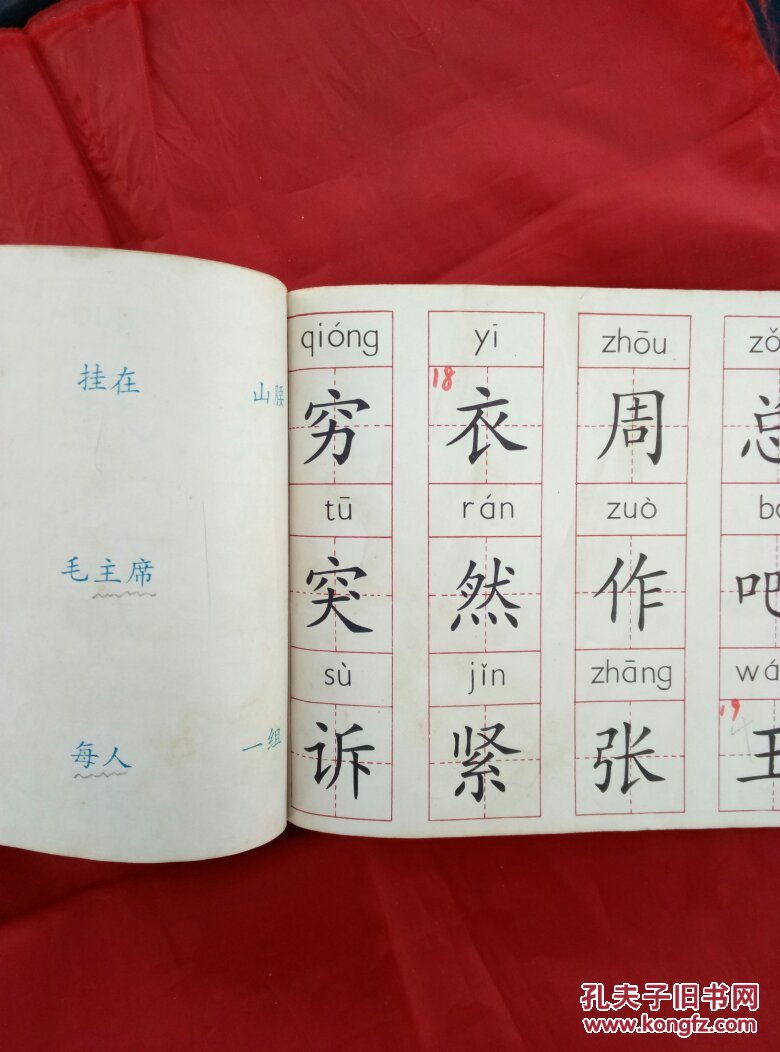 挂在 山腰
毛主席
每人 一组
qióng yī zhōu zǒ
18
穷 衣 周 总
tū rán zuò b
突 然 作 吧
sù jǐn zhāng wá
19
诉 紧 张 王
孔夫子旧书网
www.kongfz.com